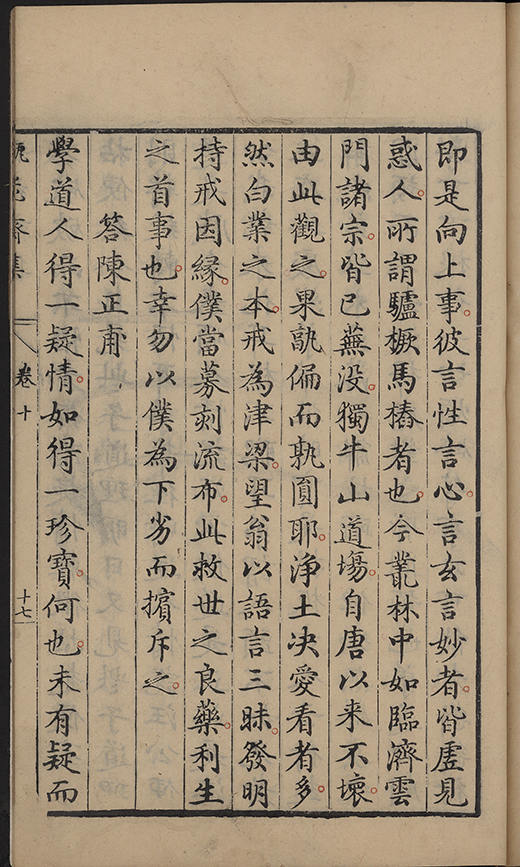 即是向上事彼言性言心言玄言妙者皆虛見
惑人所謂驢橛馬樁者也今叢林中如臨濟雲
門諸宗皆已蕪没獨牛山道塲自唐以来不壞
由此觀之果孰偏而孰圓耶淨土决愛看者多
然白業之本戒為津梁望翁以語言三昧發明
持戒因緣僕當募刻流布此救世之良藥利生
之首事也幸勿以僕為下劣而擯斥之
答陳正甫
學道人得一疑情如得一珍寶何也未有疑而
卷十
十七